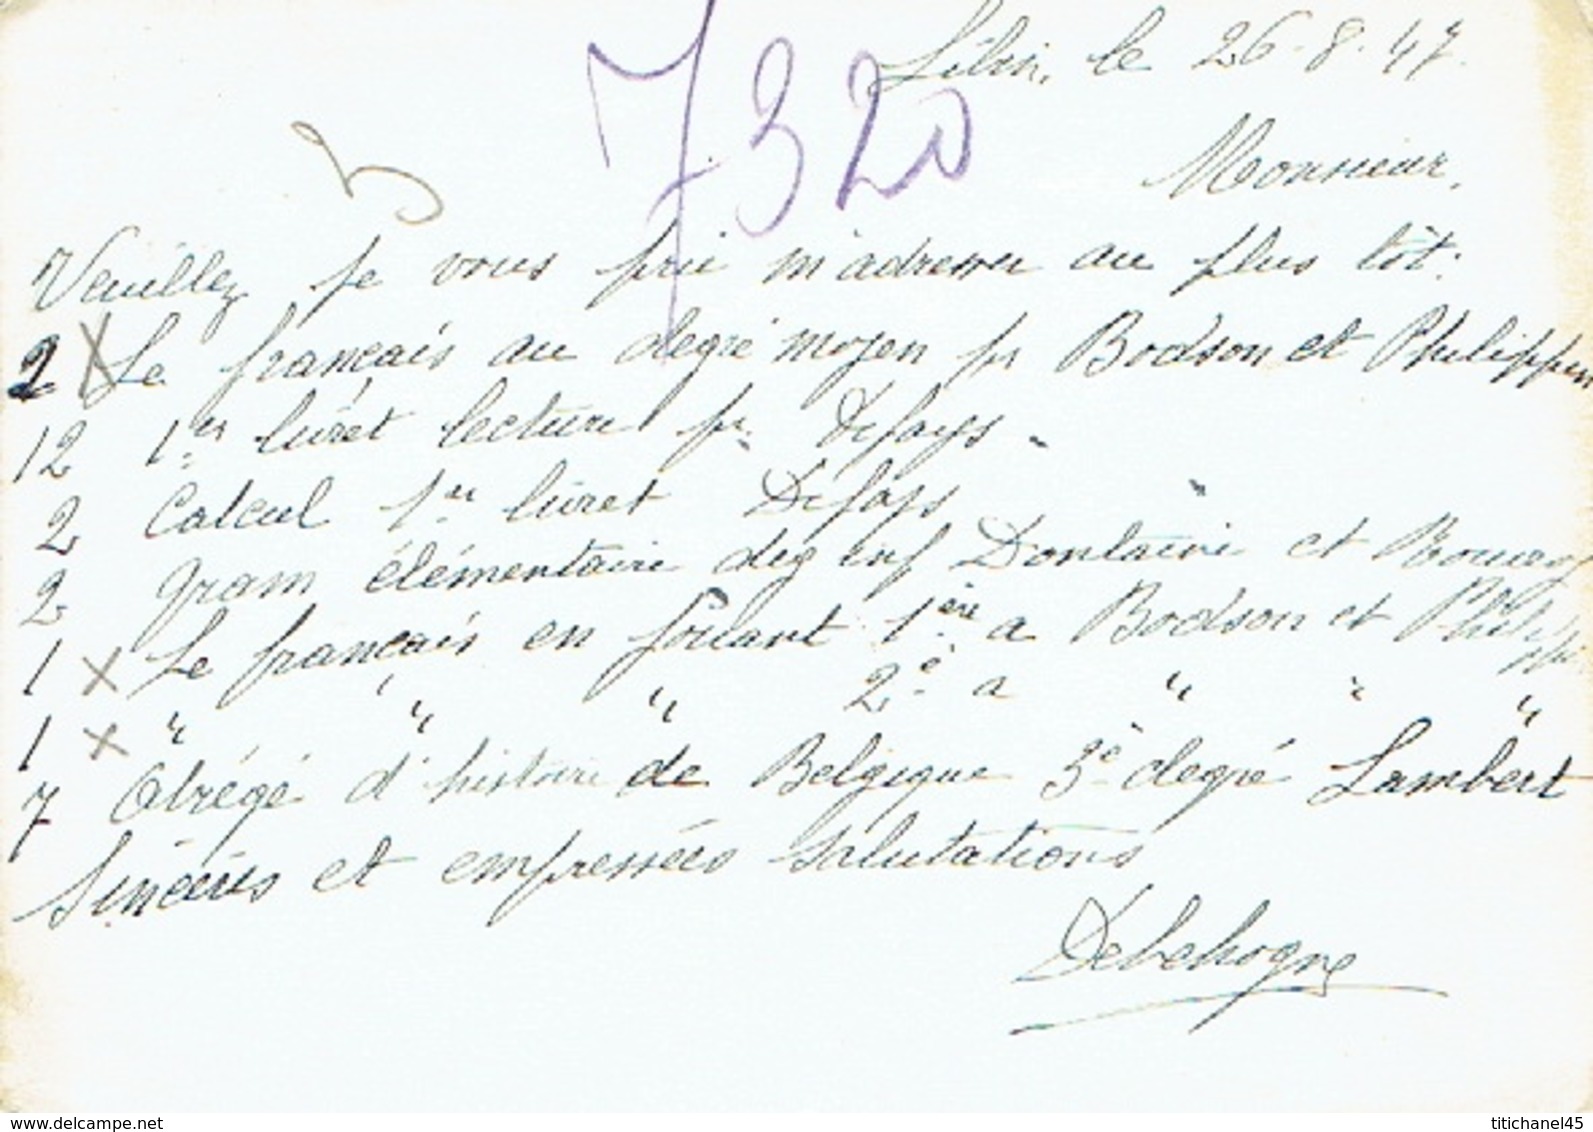 Libin, le 26-8-47.
7320
Monsieur,
Veuillez je vous prie m'adresser au plus tôt:
2 X Le français au degré moyen pr Bodson et Philippen
12 1er livret lecture pr. Defays "
2 Calcul 1er livret Defays "
2 Gram élémentaire deg inf Dontaine et
1 X Le français en jouant 1ère a Bodson et Philipp
1 X " " " 2e a " " "
7 Abrégé d'histoire de Belgique 3e degré Lambert
Sincères et empressées salutations
Delehogne
delcampe.net
titichanel45